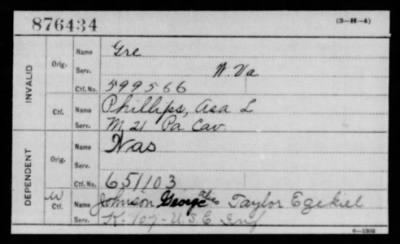 876434 (3-H-4)
INVALID
Orig. Name Gre
Serv. W. Va
Ctf. No. 599566
Ctf. Name Phillips, Asa L
Serv. M, 21 Pa Cav.
DEPENDENT
Orig. Name Was
Serv.
Ctf. No. 651103
W Ctf. Name Johnson George Taylor Ezekiel
Serv. K. 107 - U.S.C. Inf